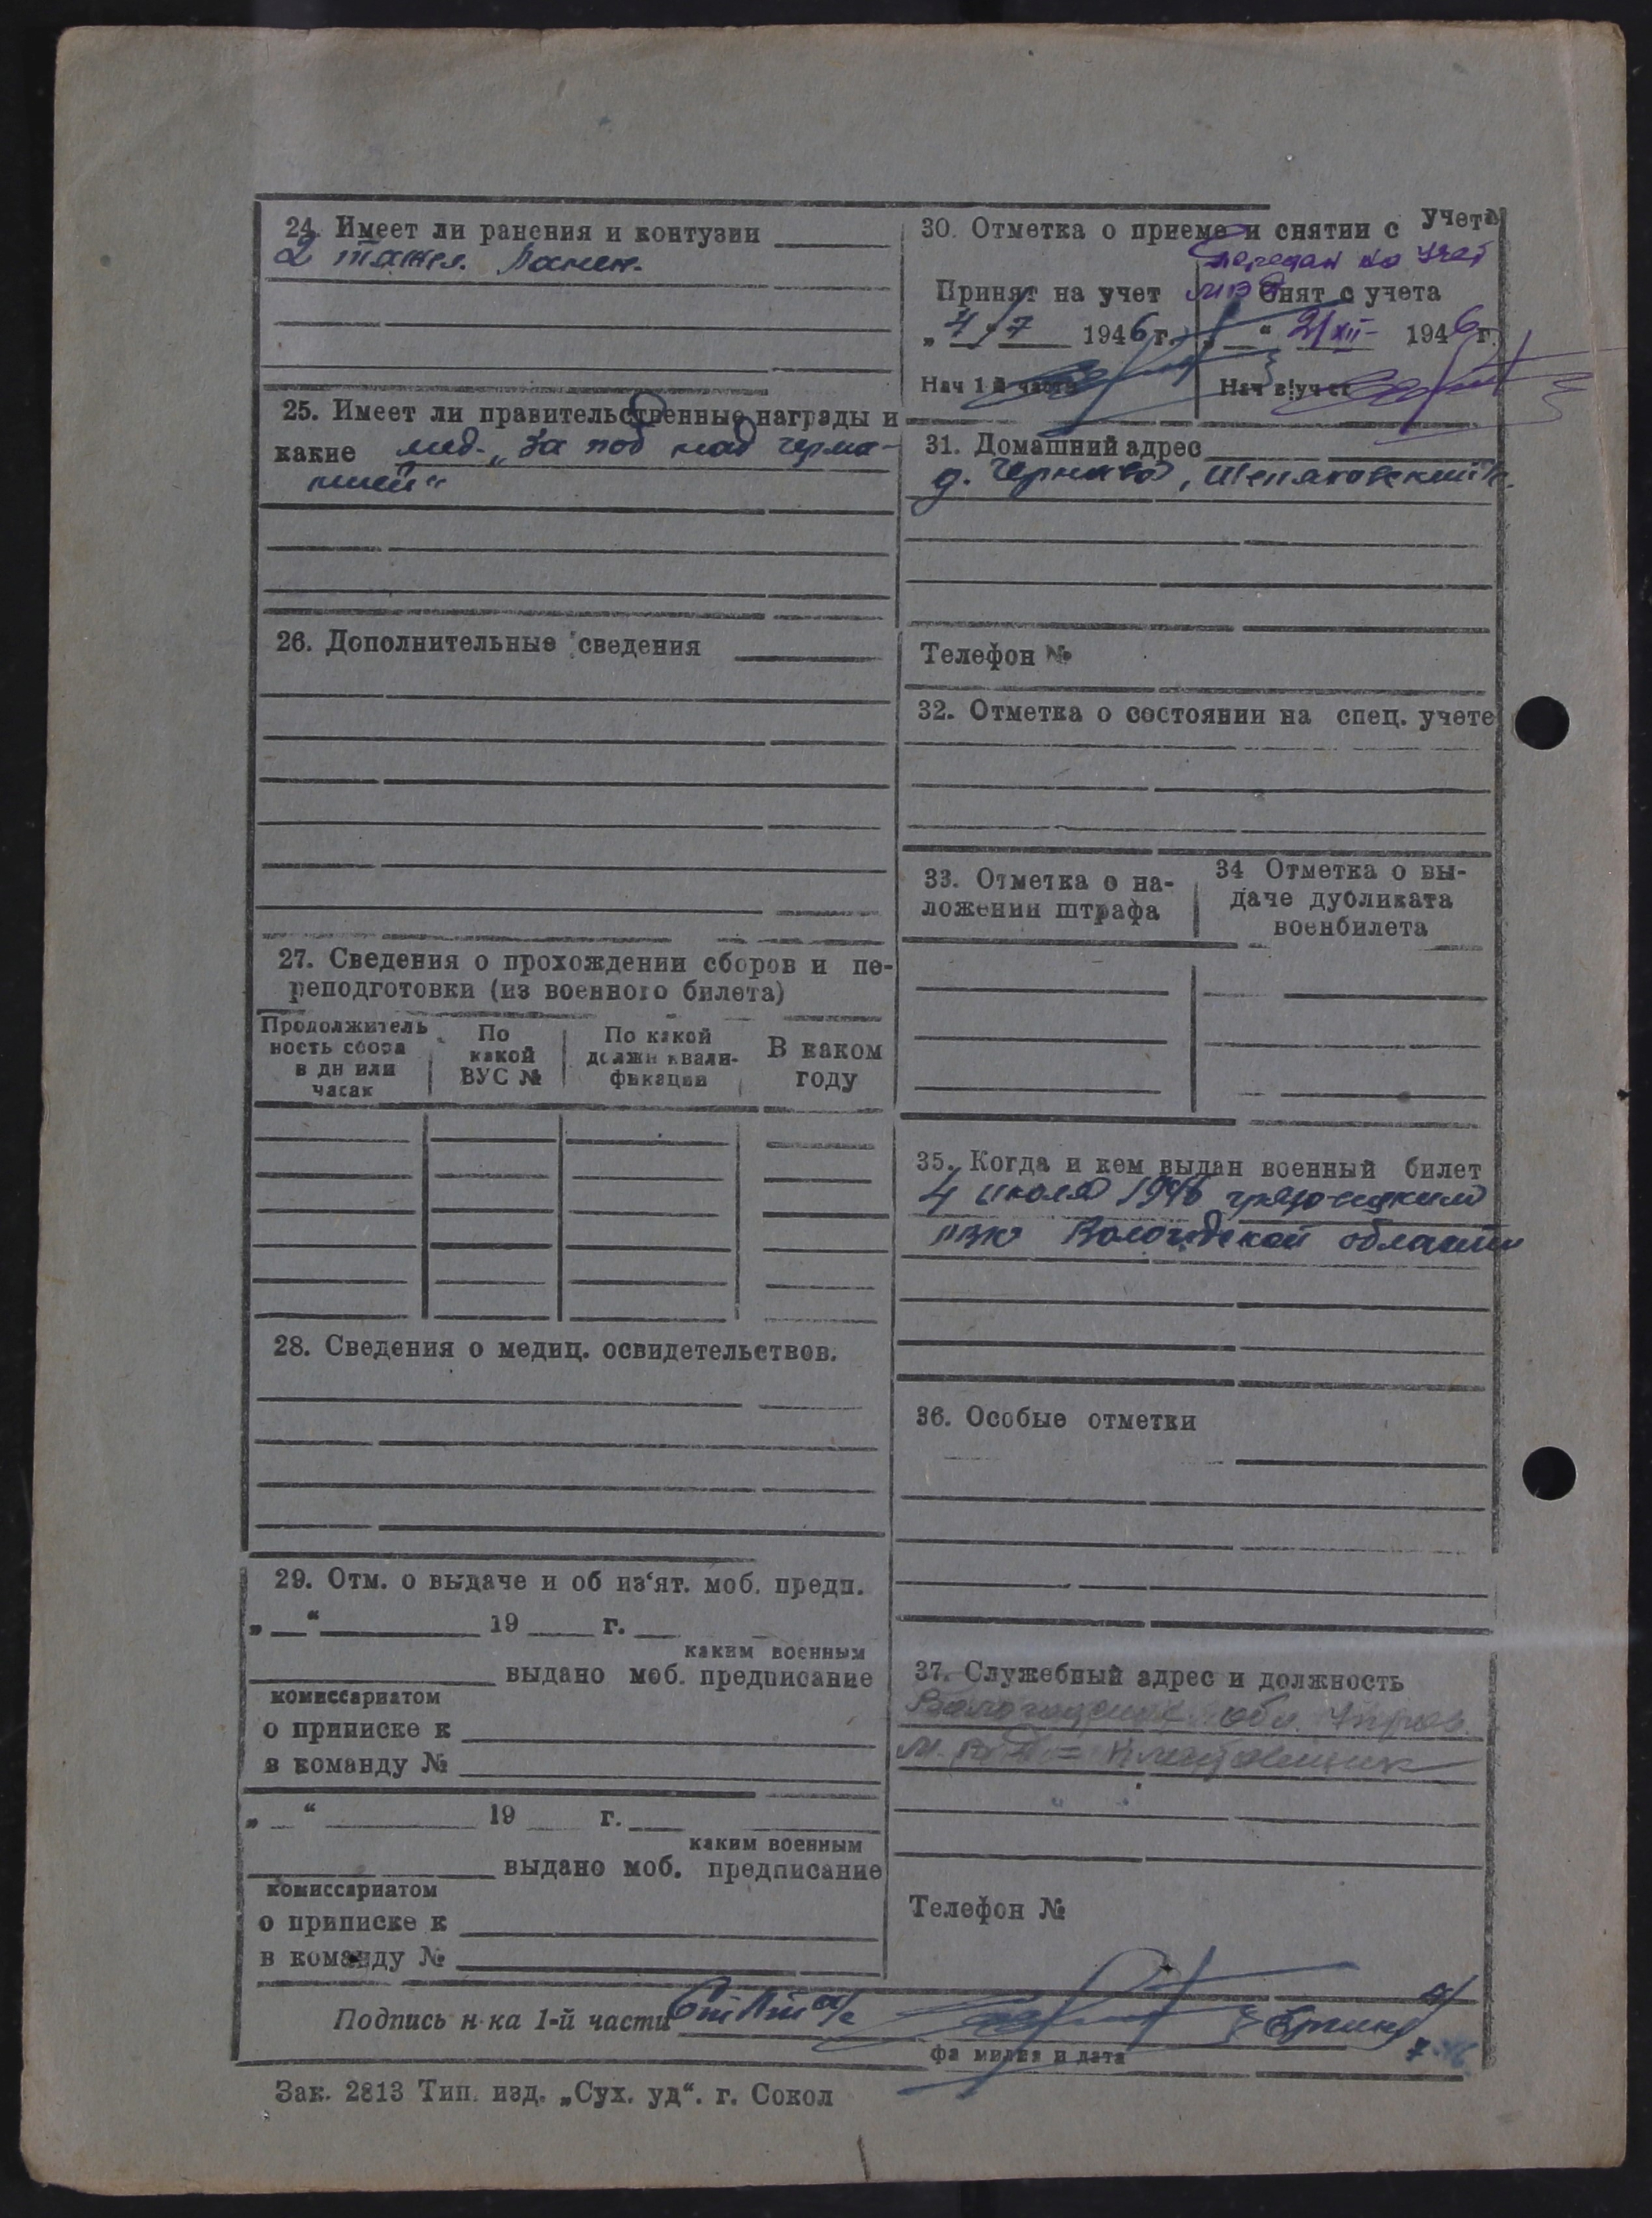 24. Имеет ли ранения и контузии
2 тяжел. ранен.
25. Имеет ли правительственные награды и
какие мед. „За поб над герма-
нией“
26. Дополнительные сведения
27. Сведения о прохождении сборов и пе-
реподготовки (из военного билета)
Продолжитель
ность сбора
в дн или
часах
По
какой
ВУС №
По какой
должн квали-
фикации
В каком
году
28. Сведения о медиц. освидетельствов.
29. Отм. о выдаче и об из‘ят. моб. предп.
„ “ 19 г.
каким военным
выдано моб. предписание
комиссариатом
о приписке к
в команду №
„ “ 19 г.
каким военным
выдано моб. предписание
комиссариатом
о приписке к
в команду №
30. Отметка о приеме и снятии с учета
передан на учет
Принят на учет
МВД
Снят с учета
„4/7 1946 г.
“ 2/XII- 1946 г.
Нач 1 й части
Нач в/учет
31. Домашний адрес
д.
Телефон №
32. Отметка о состоянии на спец. учете
33. Отметка о на-
ложении штрафа
34 Отметка о вы-
даче дубликата
военбилета
35. Когда и кем выдан военный билет
4 июля 1946 грязовецким
РВК Вологодской области
36. Особые отметки
37. Служебный адрес и должность
Вологодское обл. Управ.
М.В.Д =
Телефон №
Подпись н-ка 1-й части
фамилия и дата
Зак. 2813 Тип. изд. „Сух. уд“. г. Сокол